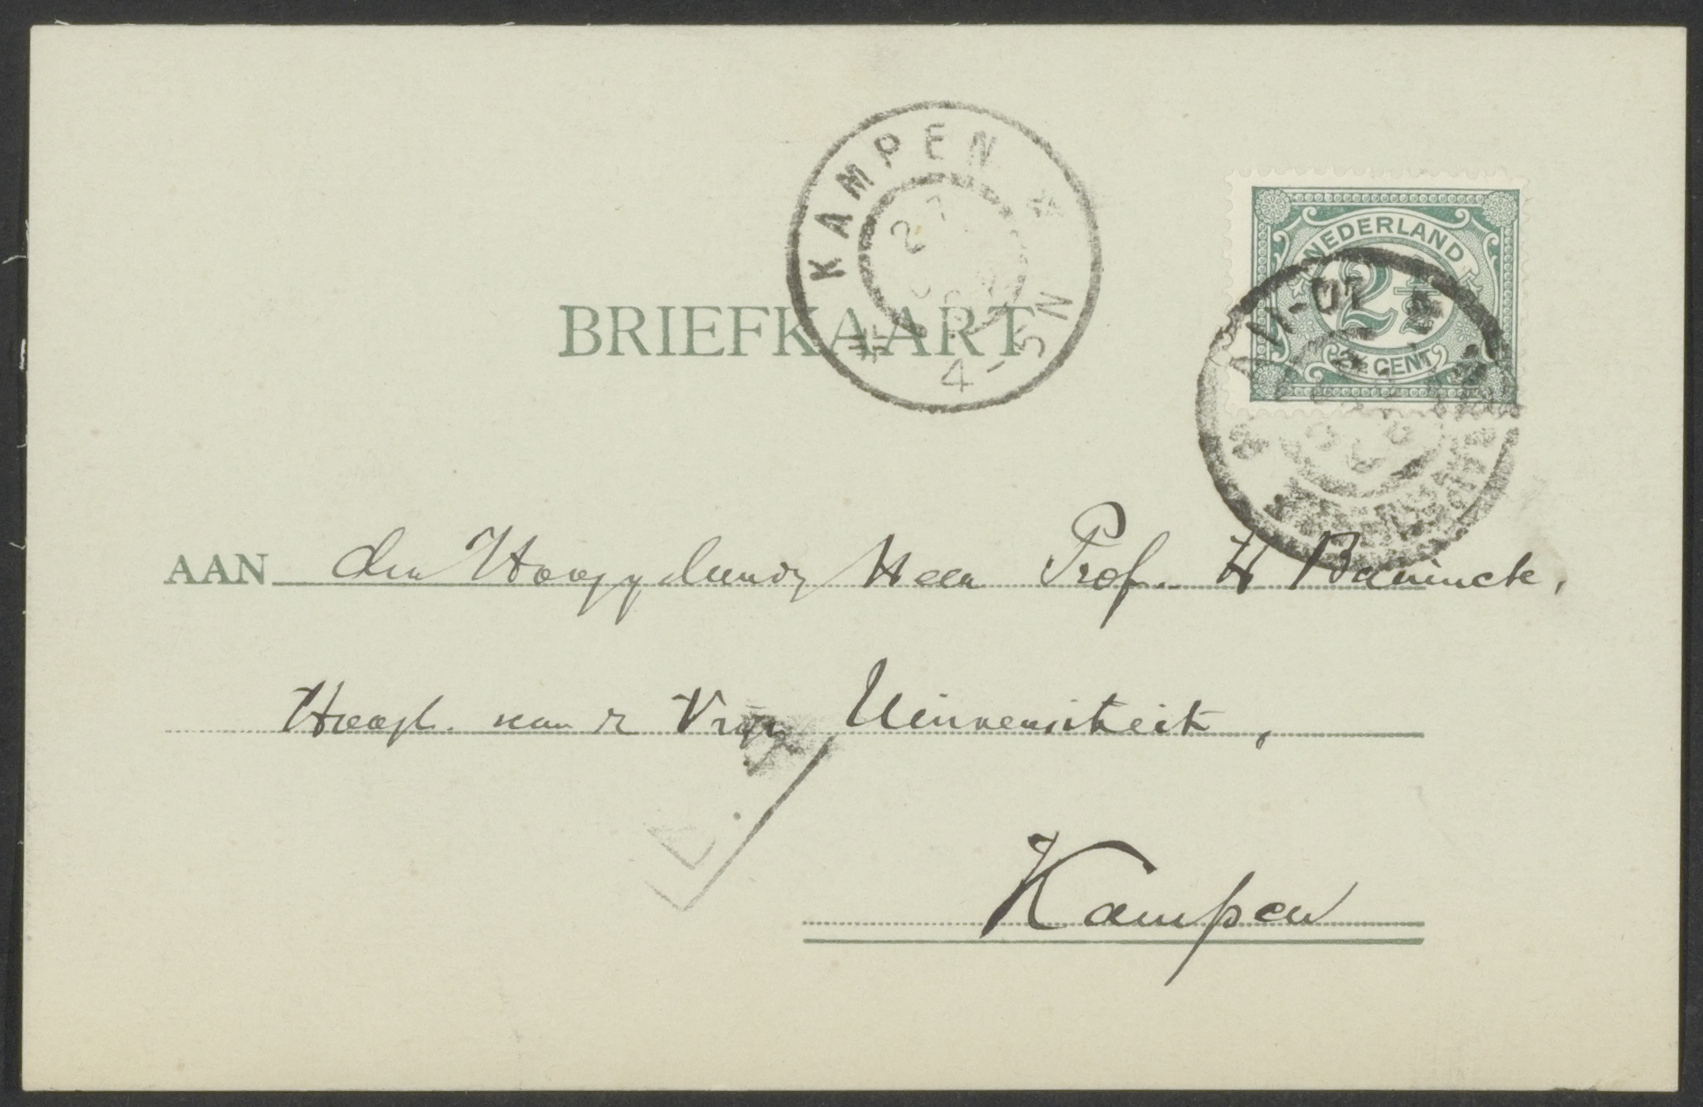 KAMPEN
27
4-5N
NEDERLAND
2½
2½ CENT
10-11
BRIEFKAART
AAN den Hooggeleerden Heer Prof. H Bavinck,
Hoogl. van de Vrije Universiteit,
Kampen